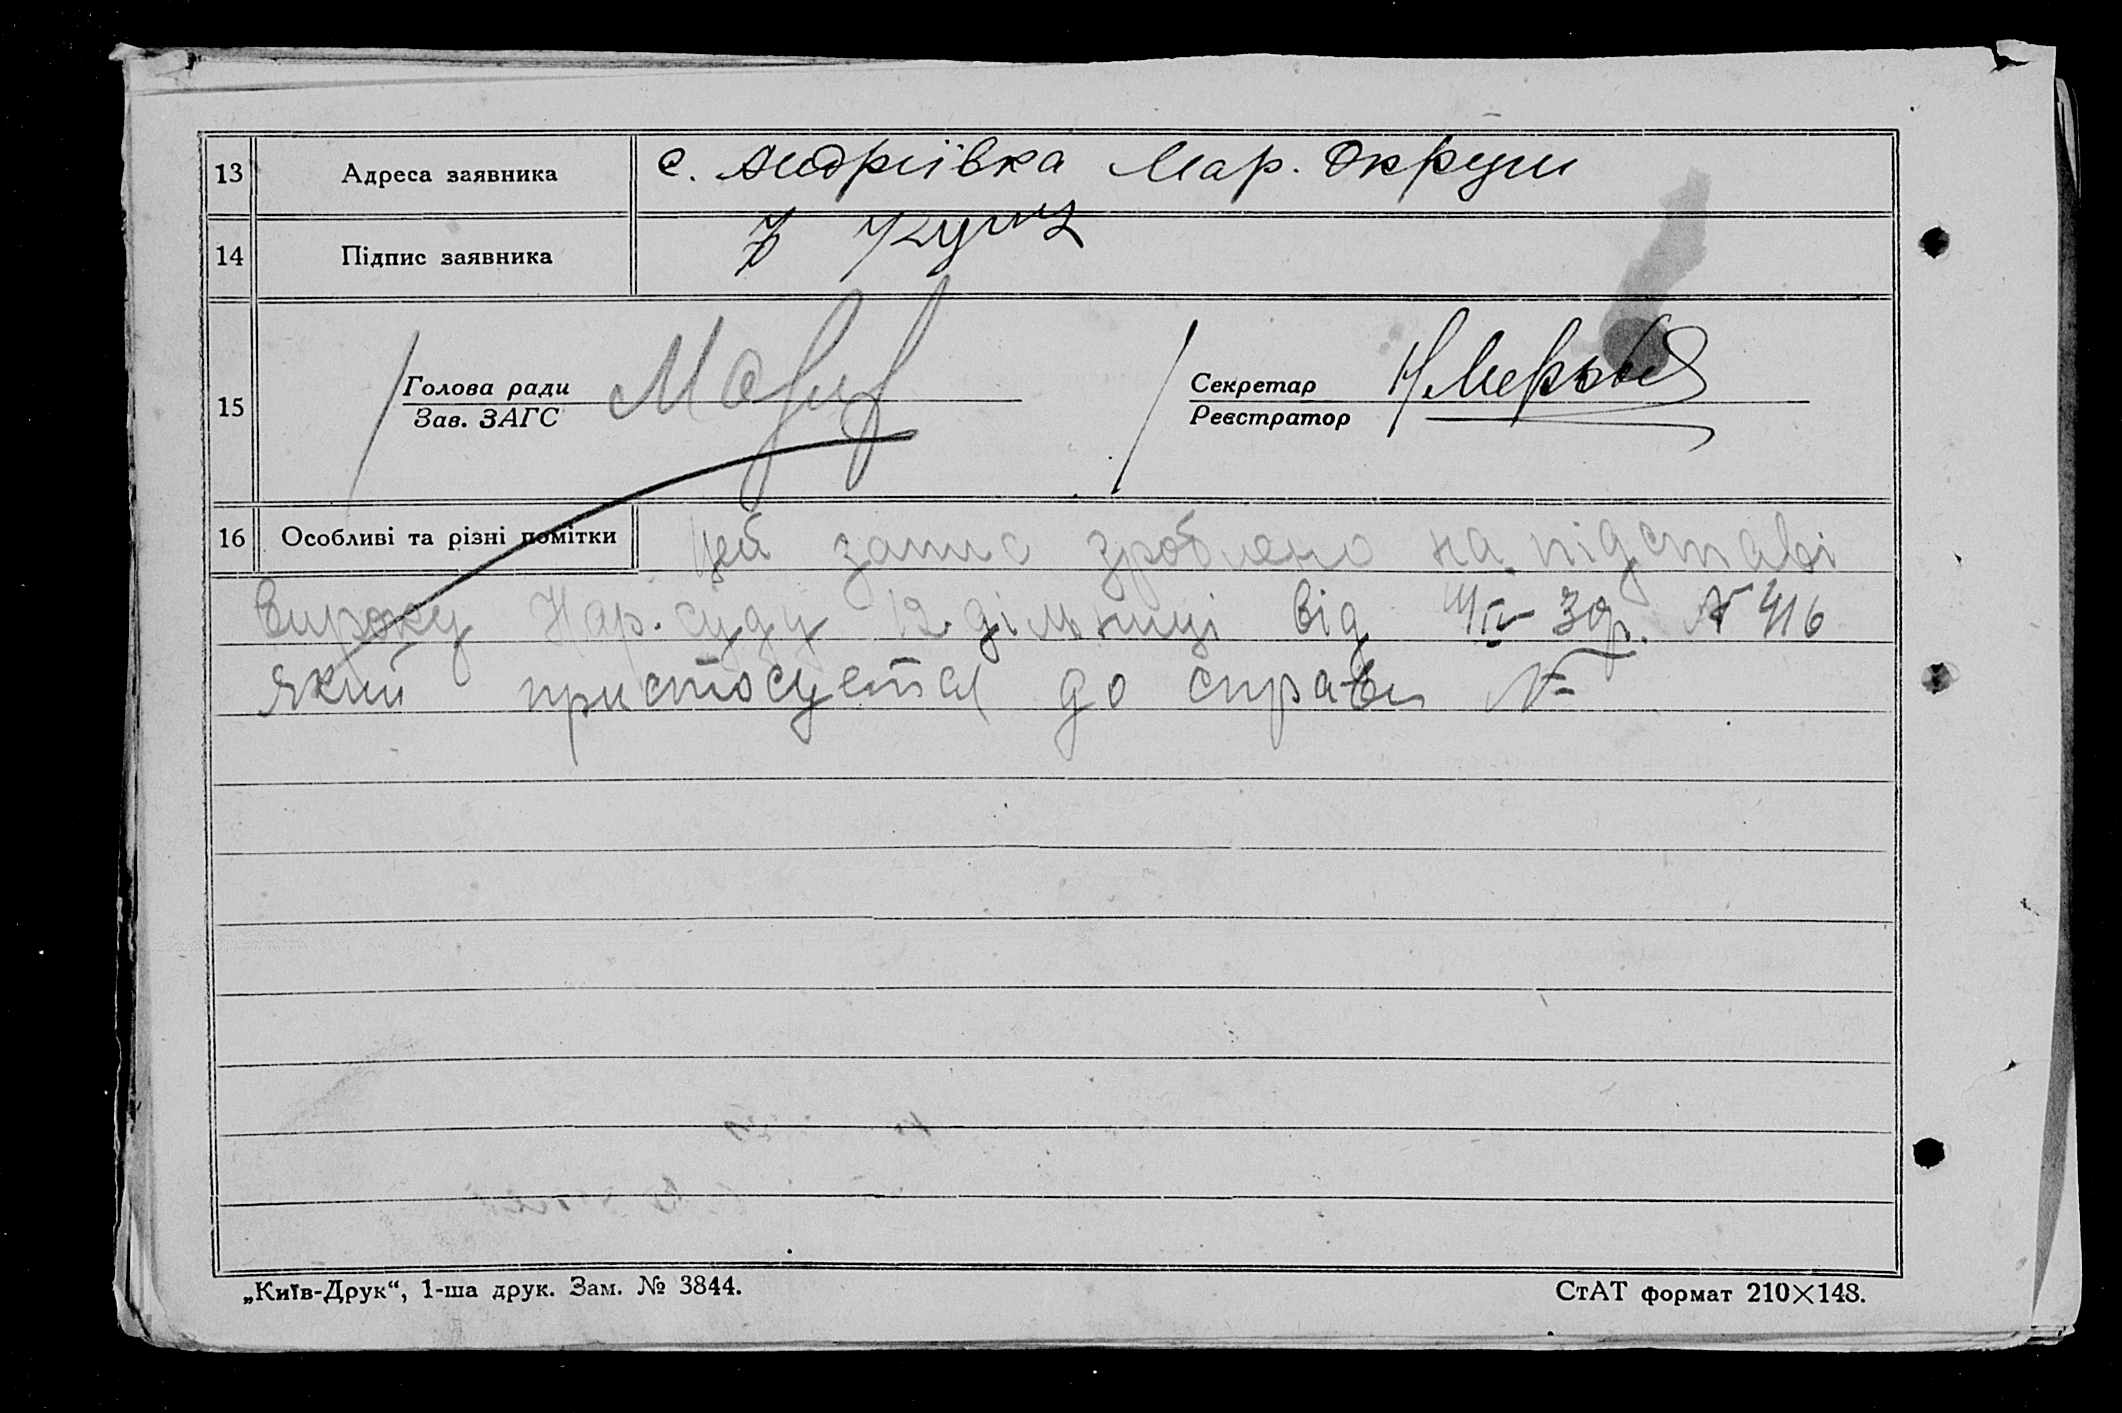 13 Адреса заявника с. Андріївка Мар. Округи
14 Підпис заявника Куц
15 Голова ради Секретар
Зав. ЗАГС Реєстратор
16 Особливі та різні помітки Цей запис зроблено на підставі
вироку Нар. суду 12 дільниці від 4/IV 30р. № 416
який пристосуется до справи №
„Київ-Друк“, 1-ша друк. Зам. № 3844. СтАТ формат 210×148.